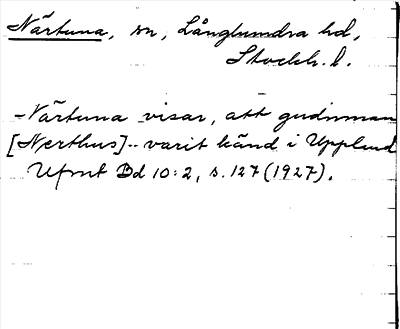 Närtuna, sn, Långhundra hd,
Stockh. l.
Närtuna visar, att gudinnan
[Nerthus] -- varit känd i Uppland
Ufmt Bd 10:2, s. 127 (1927).